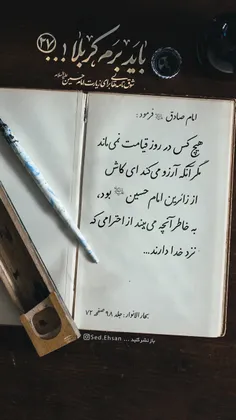 باید برم کربلا!...
۲۷
امام صادق علیه السلام فرمود:
هیچ کس در روز قیامت نمی‌ماند
مگر آنکه آرزو می‌کند ای کاش
از زائرین امام حسین علیه السلام بود،
به خاطر آنچه می‌بیند از احترامی که
نزد خدا دارند...
بحارالانوار: جلد ۹۸ صفحه ۷۲
بازنشر کنید ... Sed.Ehsan